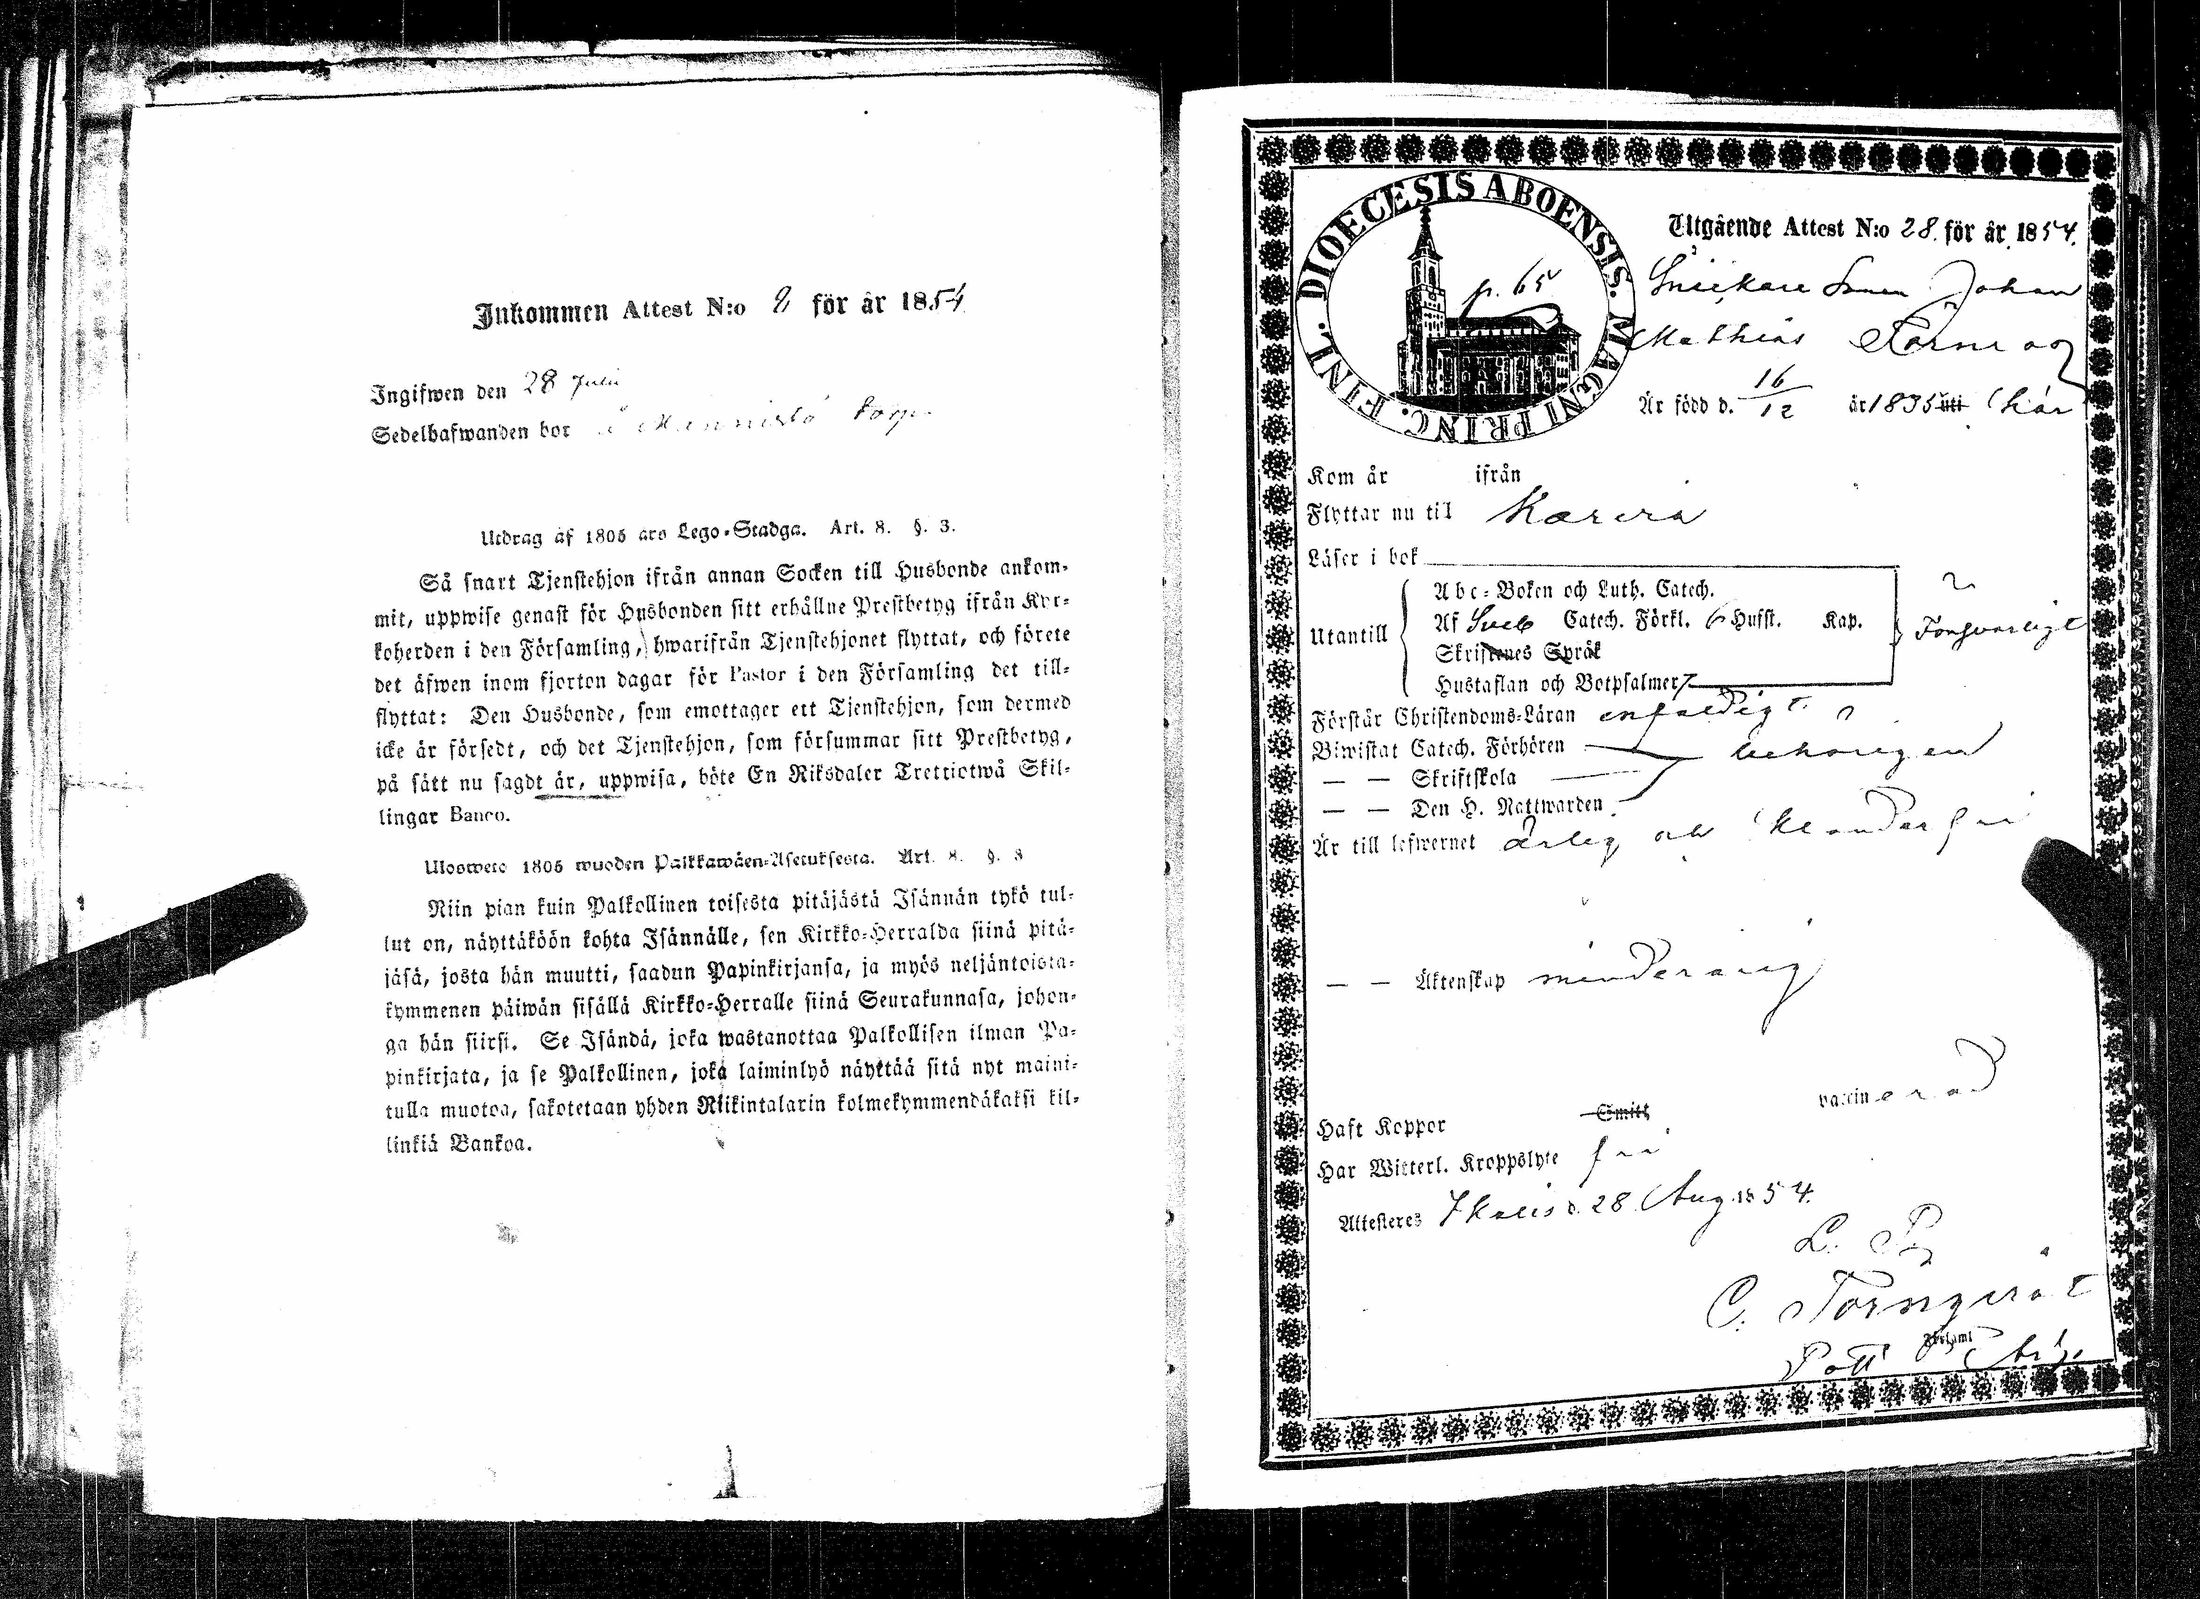 Inkommen Attest N:o 2 för år 1854
Ingifwen den 28 Juli
Sedelhafwanden bor i Männistö torp
Utdrag af 1805 års Lego-Stadga. Art. 8. §. 3.
Så snart Tjenstehjon ifrån annan Socken till Husbonde ankom-
mit, uppwise genast för Husbonden sitt erhållne Prestbetyg ifrån Kyr-
koherden i den Församling, hwarifrån Tjenstehjonet flyttat, och förete
det äfwen inom fjorton dagar för Pastor i den Församling det till-
flyttat: Den Husbonde, som emottager ett Tjenstehjon, som dermed
icke är försedt, och det Tjenstehjon, som försummar sitt Prestbetyg,
på sätt nu sagdt är, uppwisa, böte En Riksdaler Trettiotwå Skil-
lingar Banco.
Ulosweto 1805 wuoden Palkkawäen-Asetuksesta. Art. 8. §. 3
Niin pian kuin Palkollinen toisesta pitäjästä Isännän tykö tul-
lut on, näyttäköön kohta Isännälle, sen Kirkko-Herralda siinä pitä-
jäsä, josta hän muutti, saadun Papinkirjansa, ja myös neljäntoista-
kymmenen päiwän sisällä Kirkko-Herralle siinä Seurakunnasa, johon-
ga hän siirsi. Se Isändä, joka wastanottaa Palkollisen ilman Pa-
pinkirjata, ja se Palkollinen, joka laiminlyö näyttää sitä nyt maini-
tulla muotoa, sakotetaan yhden Riikintalarin kolmekymmendäkaksi kil-
linkiä Bankoa.
DIOECESIS ABOENSIS. MAGNI PRINC. FINL.
p. 65
Utgående Attest N:o 28. för år 1854.
Snickare Sonen Johan
Mathias Törnroos
Är född d. 16/12 år 1835 uti här
Kom år ifrån
Flyttar nu till Karvia
Läser i bok
Abc-Boken och Luth. Catech.
Utantill Af Sveb Catech. Förkl. 6 Hufst. Kap. Försvarligt
Skriftenes Språk
Hustaflan och Botpsalmer 7
Förstår Christendoms-Läran enfaldigt
Biwistat Catech. Förhören behörigen
— — Skriftskola
— — Den H. Nattwarden
Är till lefwernet ärlig och klanderfri
— — Äktenskap minderårig
Haft Koppor Smitt vaccinerad
Har Witterl. Kroppslyte fri
Attesteras Ikalis d. 28 Aug 1854.
L. P
C. Törnqvist